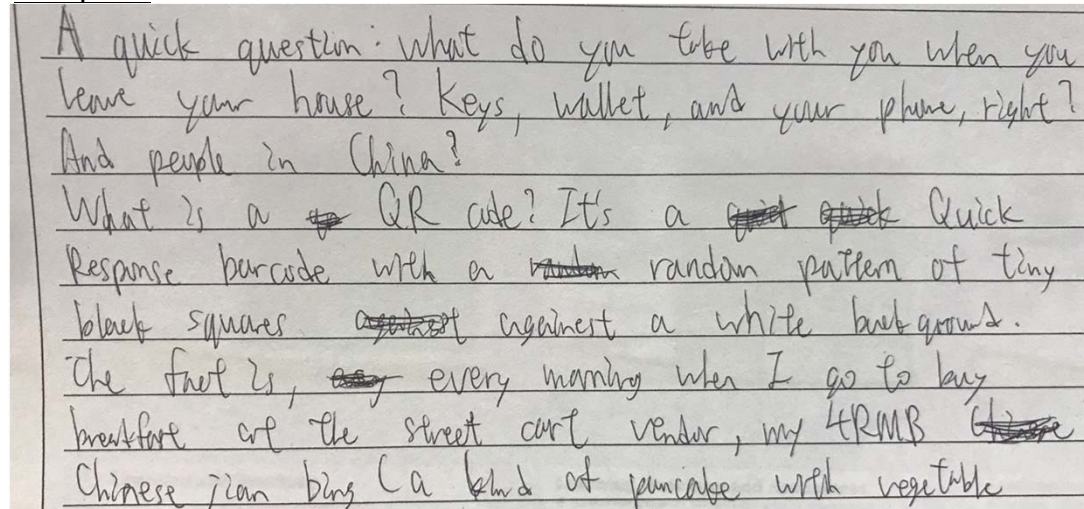 A quick question: what do you take with you when you
leave your house? Keys, wallet, and your phone, right?
And people in China?
What is a QR code? It's a Quick
Response barcode with a random pattern of tiny
black squares againest a white background.
The fact is, every morning when I go to buy
breakfart at the street cart vendor, my 4RMB
Chinese jian bing (a kind of pancake with vegetable